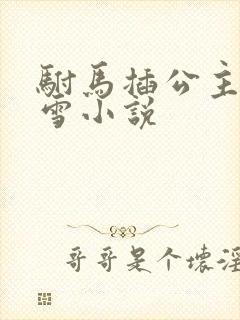 駙馬插公主
雪小說
哥哥是个壞淫